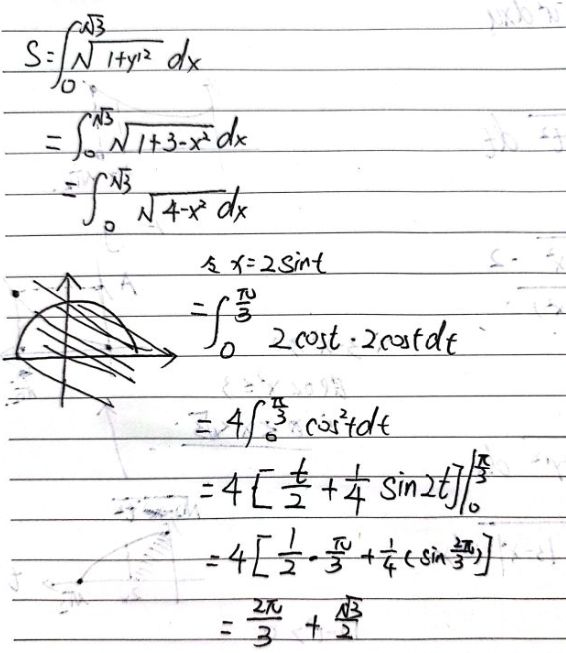 S = ∫₀^√3 √(1+y'²) dx
= ∫₀^√3 √(1+3-x²) dx
= ∫₀^√3 √(4-x²) dx
令 x = 2sint
= ∫₀^(π/3) 2cost · 2cost dt
= 4∫₀^(π/3) cos²t dt
= 4[t/2 + 1/4 sin2t]|₀^(π/3)
= 4[1/2 · π/3 + 1/4 (sin 2π/3)]
= 2π/3 + √3/2